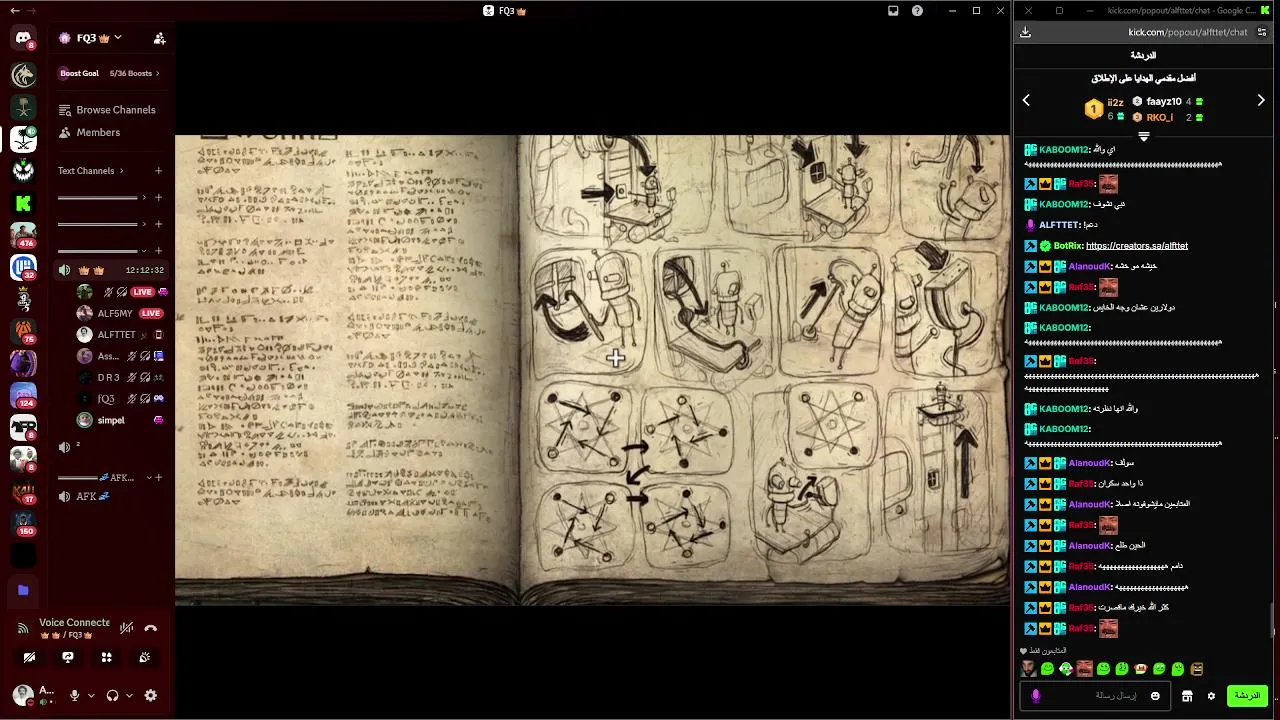 FQ3
FQ3
Boost Goal
5/36 Boosts
Browse Channels
Members
Text Channels
12:12:32
LIVE
ALF5MY
LIVE
ALFTTET
Ass...
D R 3
FQ3
simpel
2
AFK...
AFK
Voice Connecte
/ FQ3
A...
8
476
32
75
124
8
8
17
150
kick.com/popout/alfttet/chat - Google C...
kick.com/popout/alfttet/chat
الدردشة
أفضل مقدمي الهدايا على الإطلاق
1
ii2z
6
2 faayz10 4
3 RKO_i 2
KABOOM12: اي والله
Raf35:
KABOOM12: تبي تشوف
ALFTTET: دعم!
BotRix: https://creators.sa/alfttet
AlanoudK: خيشه مو خشه
Raf35:
KABOOM12: دولارين عشان وجه الخايس
KABOOM12:
Raf35:
KABOOM12: والله انها نظرته
KABOOM12:
AlanoudK: سولف
Raf35: ذا واحد سكران
AlanoudK: المتابعين مايشوفونه اصلا
Raf35:
AlanoudK: الحين طلع
AlanoudK:
Raf35: كثر الله خيرك ماقصرت
Raf35:
المتابعون فقط
إرسال رسالة
الدردشة